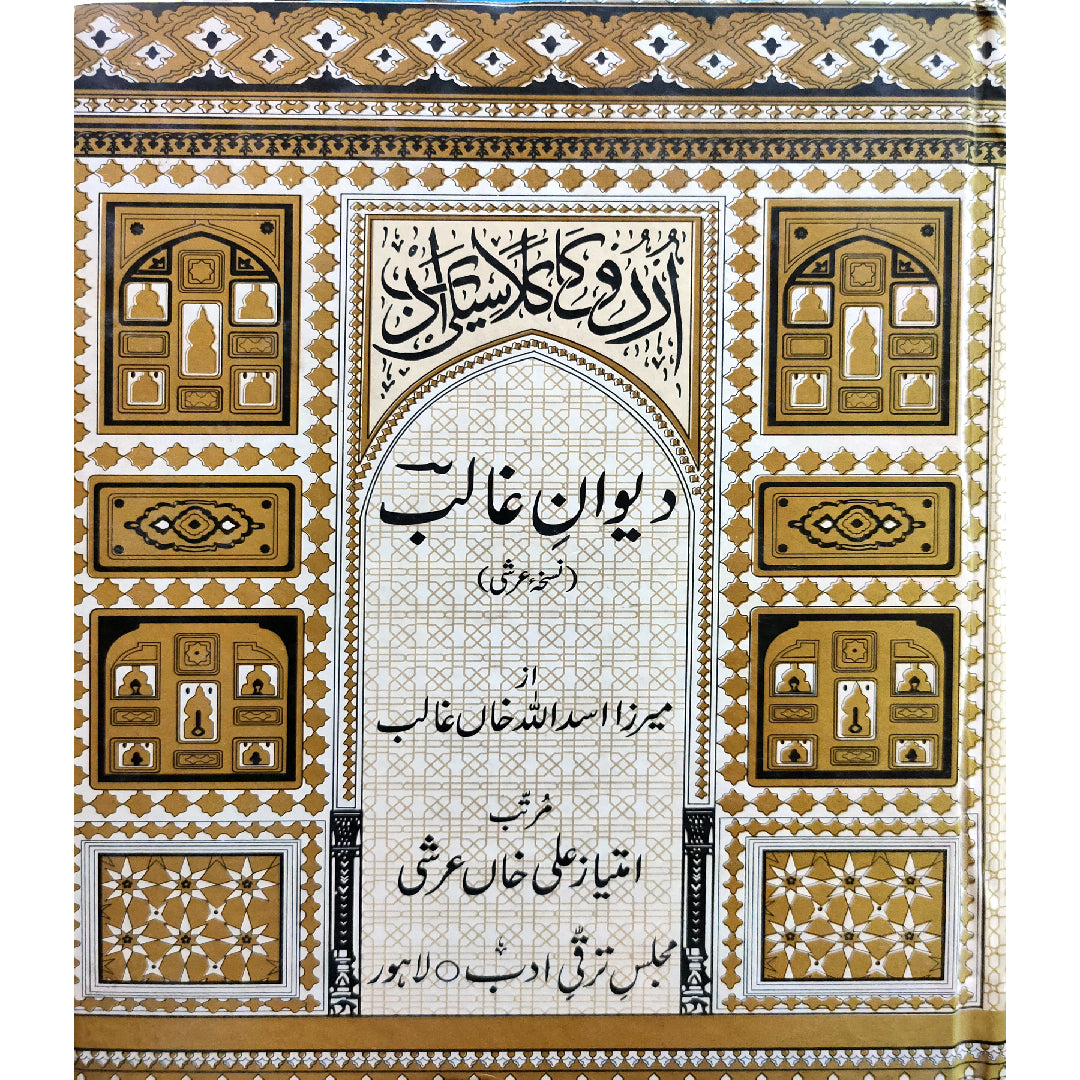 اُردُو کا کلاسیکی ادب
دیوانِ غالب
(نسخۂ عرشی)
از
میرزا اسد اللہ خاں غالب
مُرتّب
امتیاز علی خاں عرشی
مجلسِ ترقّیِ ادب ○ لاہور